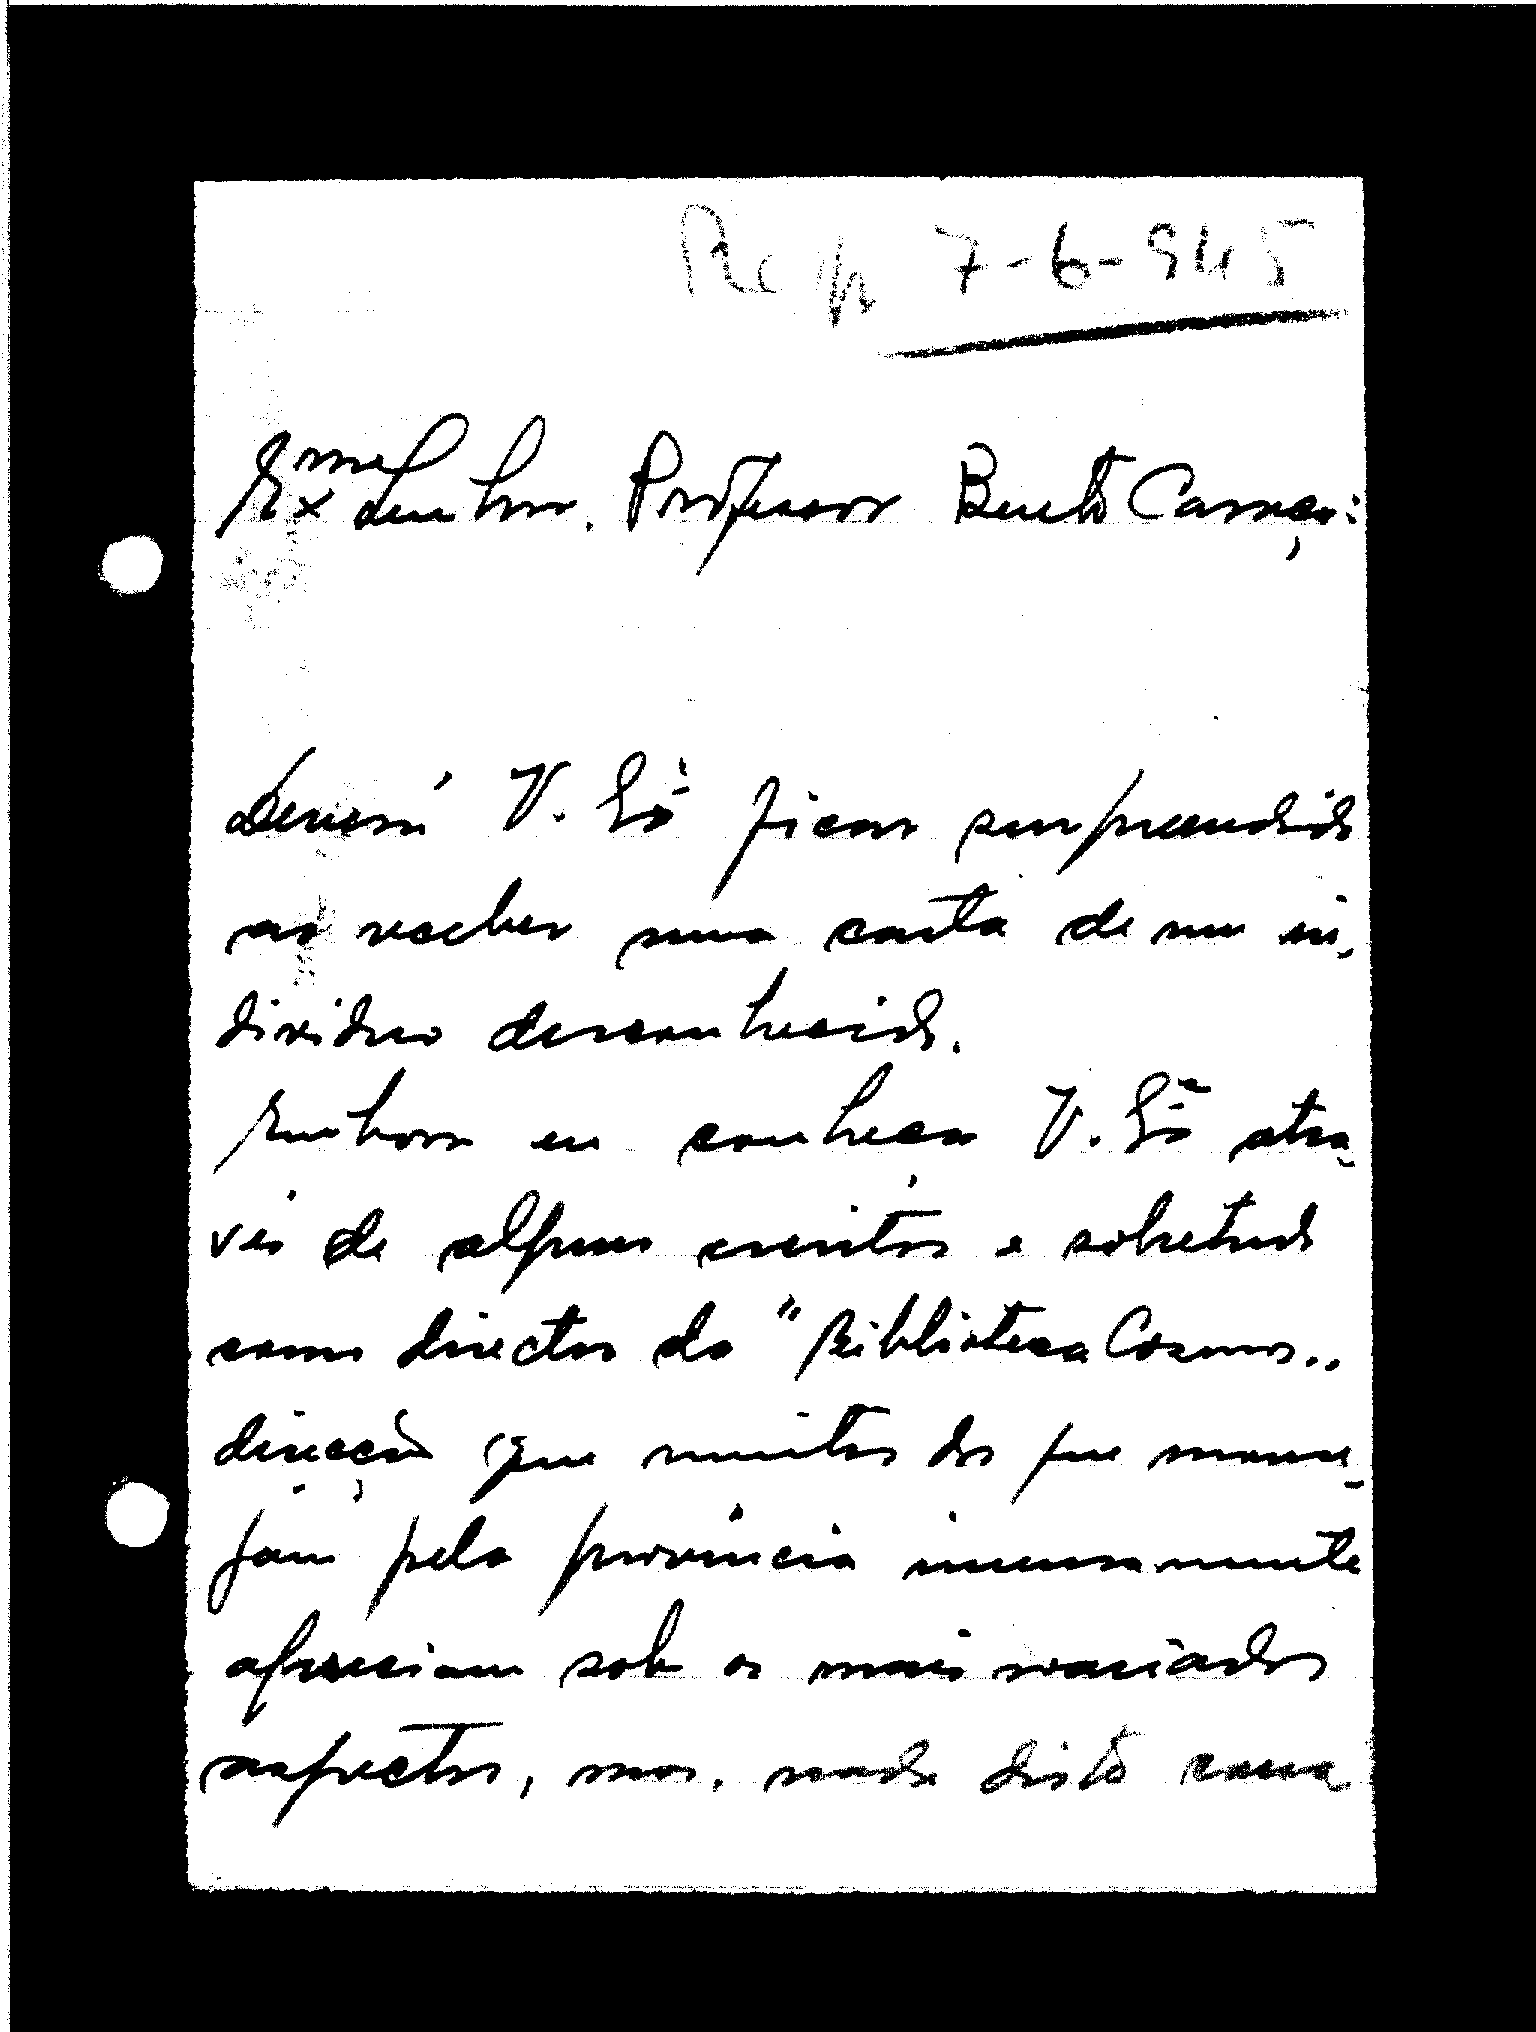 Resp 7-6-945
Exmo Senhor. Professor Bento Caraça:
Deverá V. Exª ficar surpreendido
ao receber uma carta de um in-
divíduo desconhecido.
Embora eu conheça V. Exª atra-
vés de alguns escritos e sobretudo
como director da "Biblioteca Cosmos"
direcção que muitos dos que mane-
jam pela província imensamente
apreciam sob os mais variados
aspectos, mas, nada disto